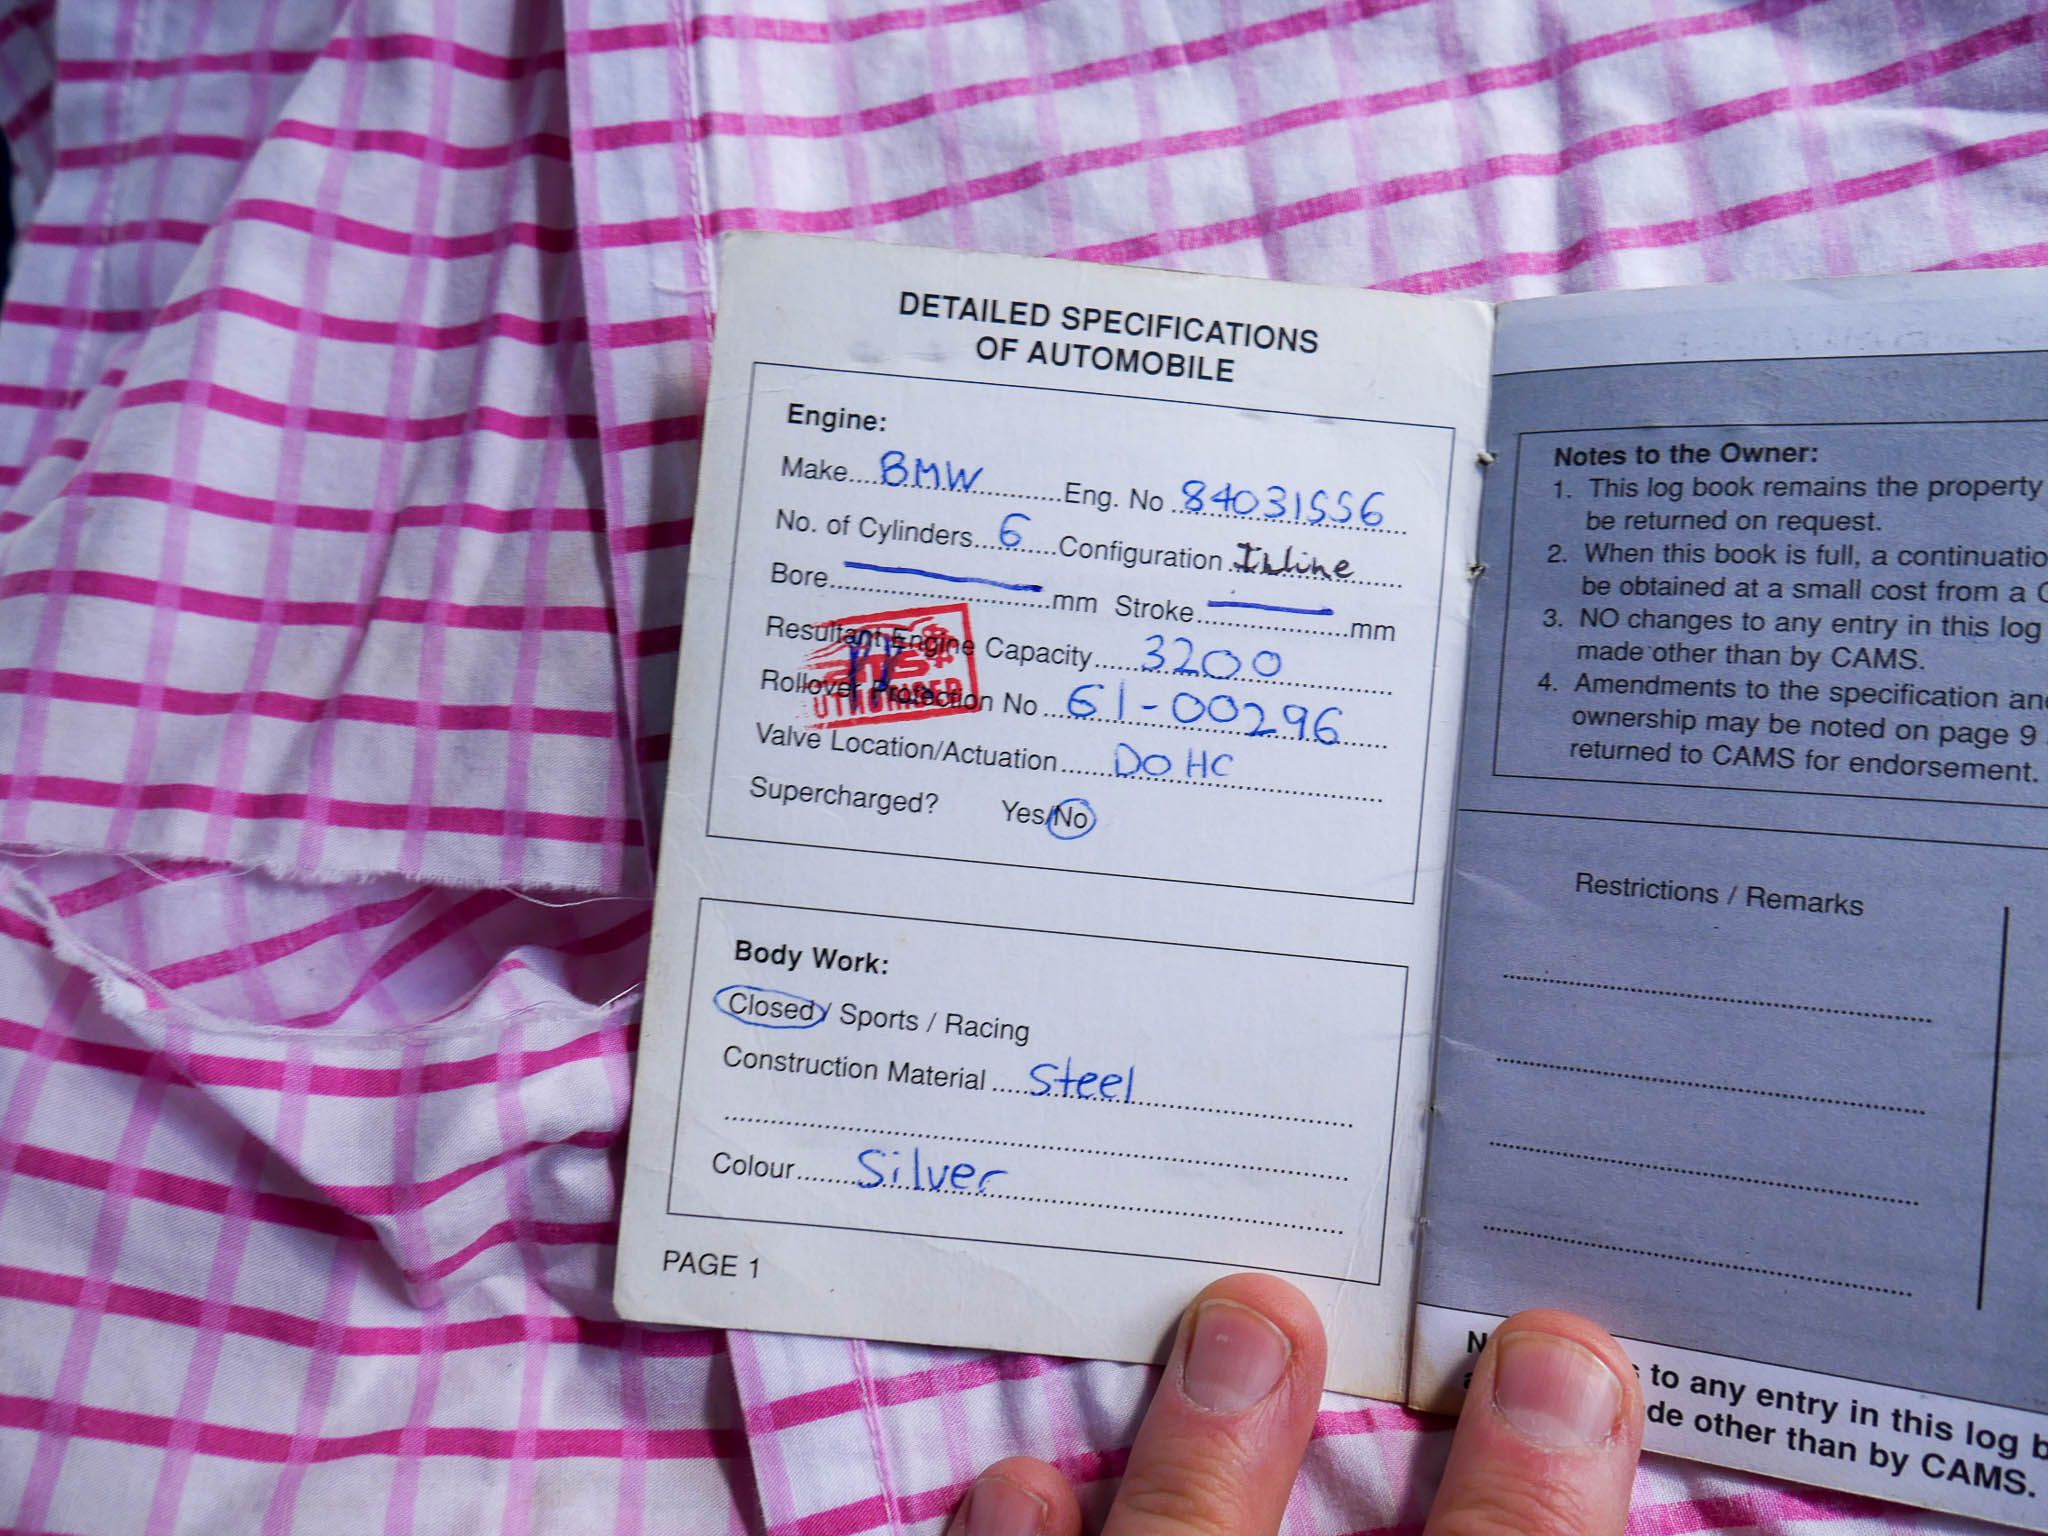 DETAILED SPECIFICATIONS
OF AUTOMOBILE
Engine:
Make....BMW..............Eng. No ..84031556..
No. of Cylinders....6....Configuration..Inline......
Bore......................mm Stroke....................mm
Resultant Engine Capacity......3200..............
Rollover Protection No ....61-00296......
Valve Location/Actuation.......DOHC................
Supercharged? Yes/No
Body Work:
Closed / Sports / Racing
Construction Material ....Steel..........................
Colour.........Silver..........................................
PAGE 1
Notes to the Owner:
1. This log book remains the property
be returned on request.
2. When this book is full, a continuatio
be obtained at a small cost from a C
3. NO changes to any entry in this log
made other than by CAMS.
4. Amendments to the specification and
ownership may be noted on page 9
returned to CAMS for endorsement.
Restrictions / Remarks
to any entry in this log b
de other than by CAMS.